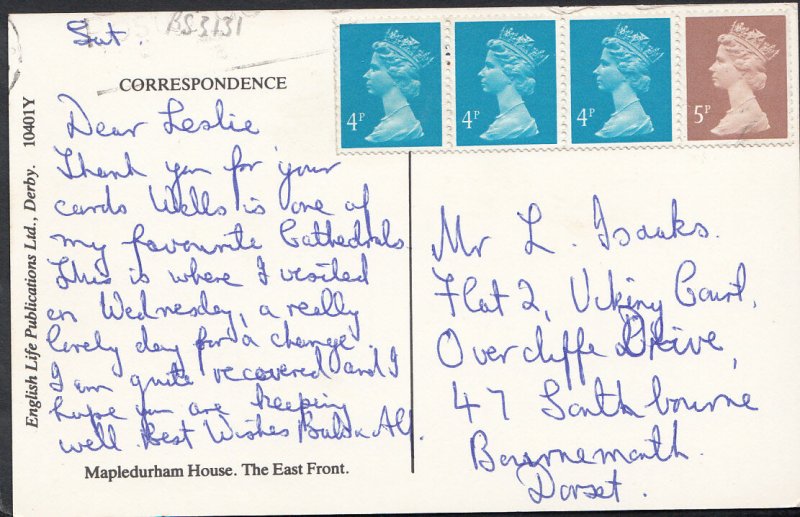 Sat.
BS3131
CORRESPONDENCE
Dear Leslie
Thank you for your
cards Wells is one of
my favourite Cathedrals.
This is where I visited
on Wednesday, a really
lovely day for a change.
I am quite recovered and I
hope you are keeping
well Best Wishes
Mapledurham House. The East Front.
English Life Publications Ltd., Derby. 10401Y
4P
4P
4P
5P
Mr L. Isaaks.
Flat 2, Viking Court,
Overcliffe Drive,
47 Southbourne
Bournemouth.
Dorset.